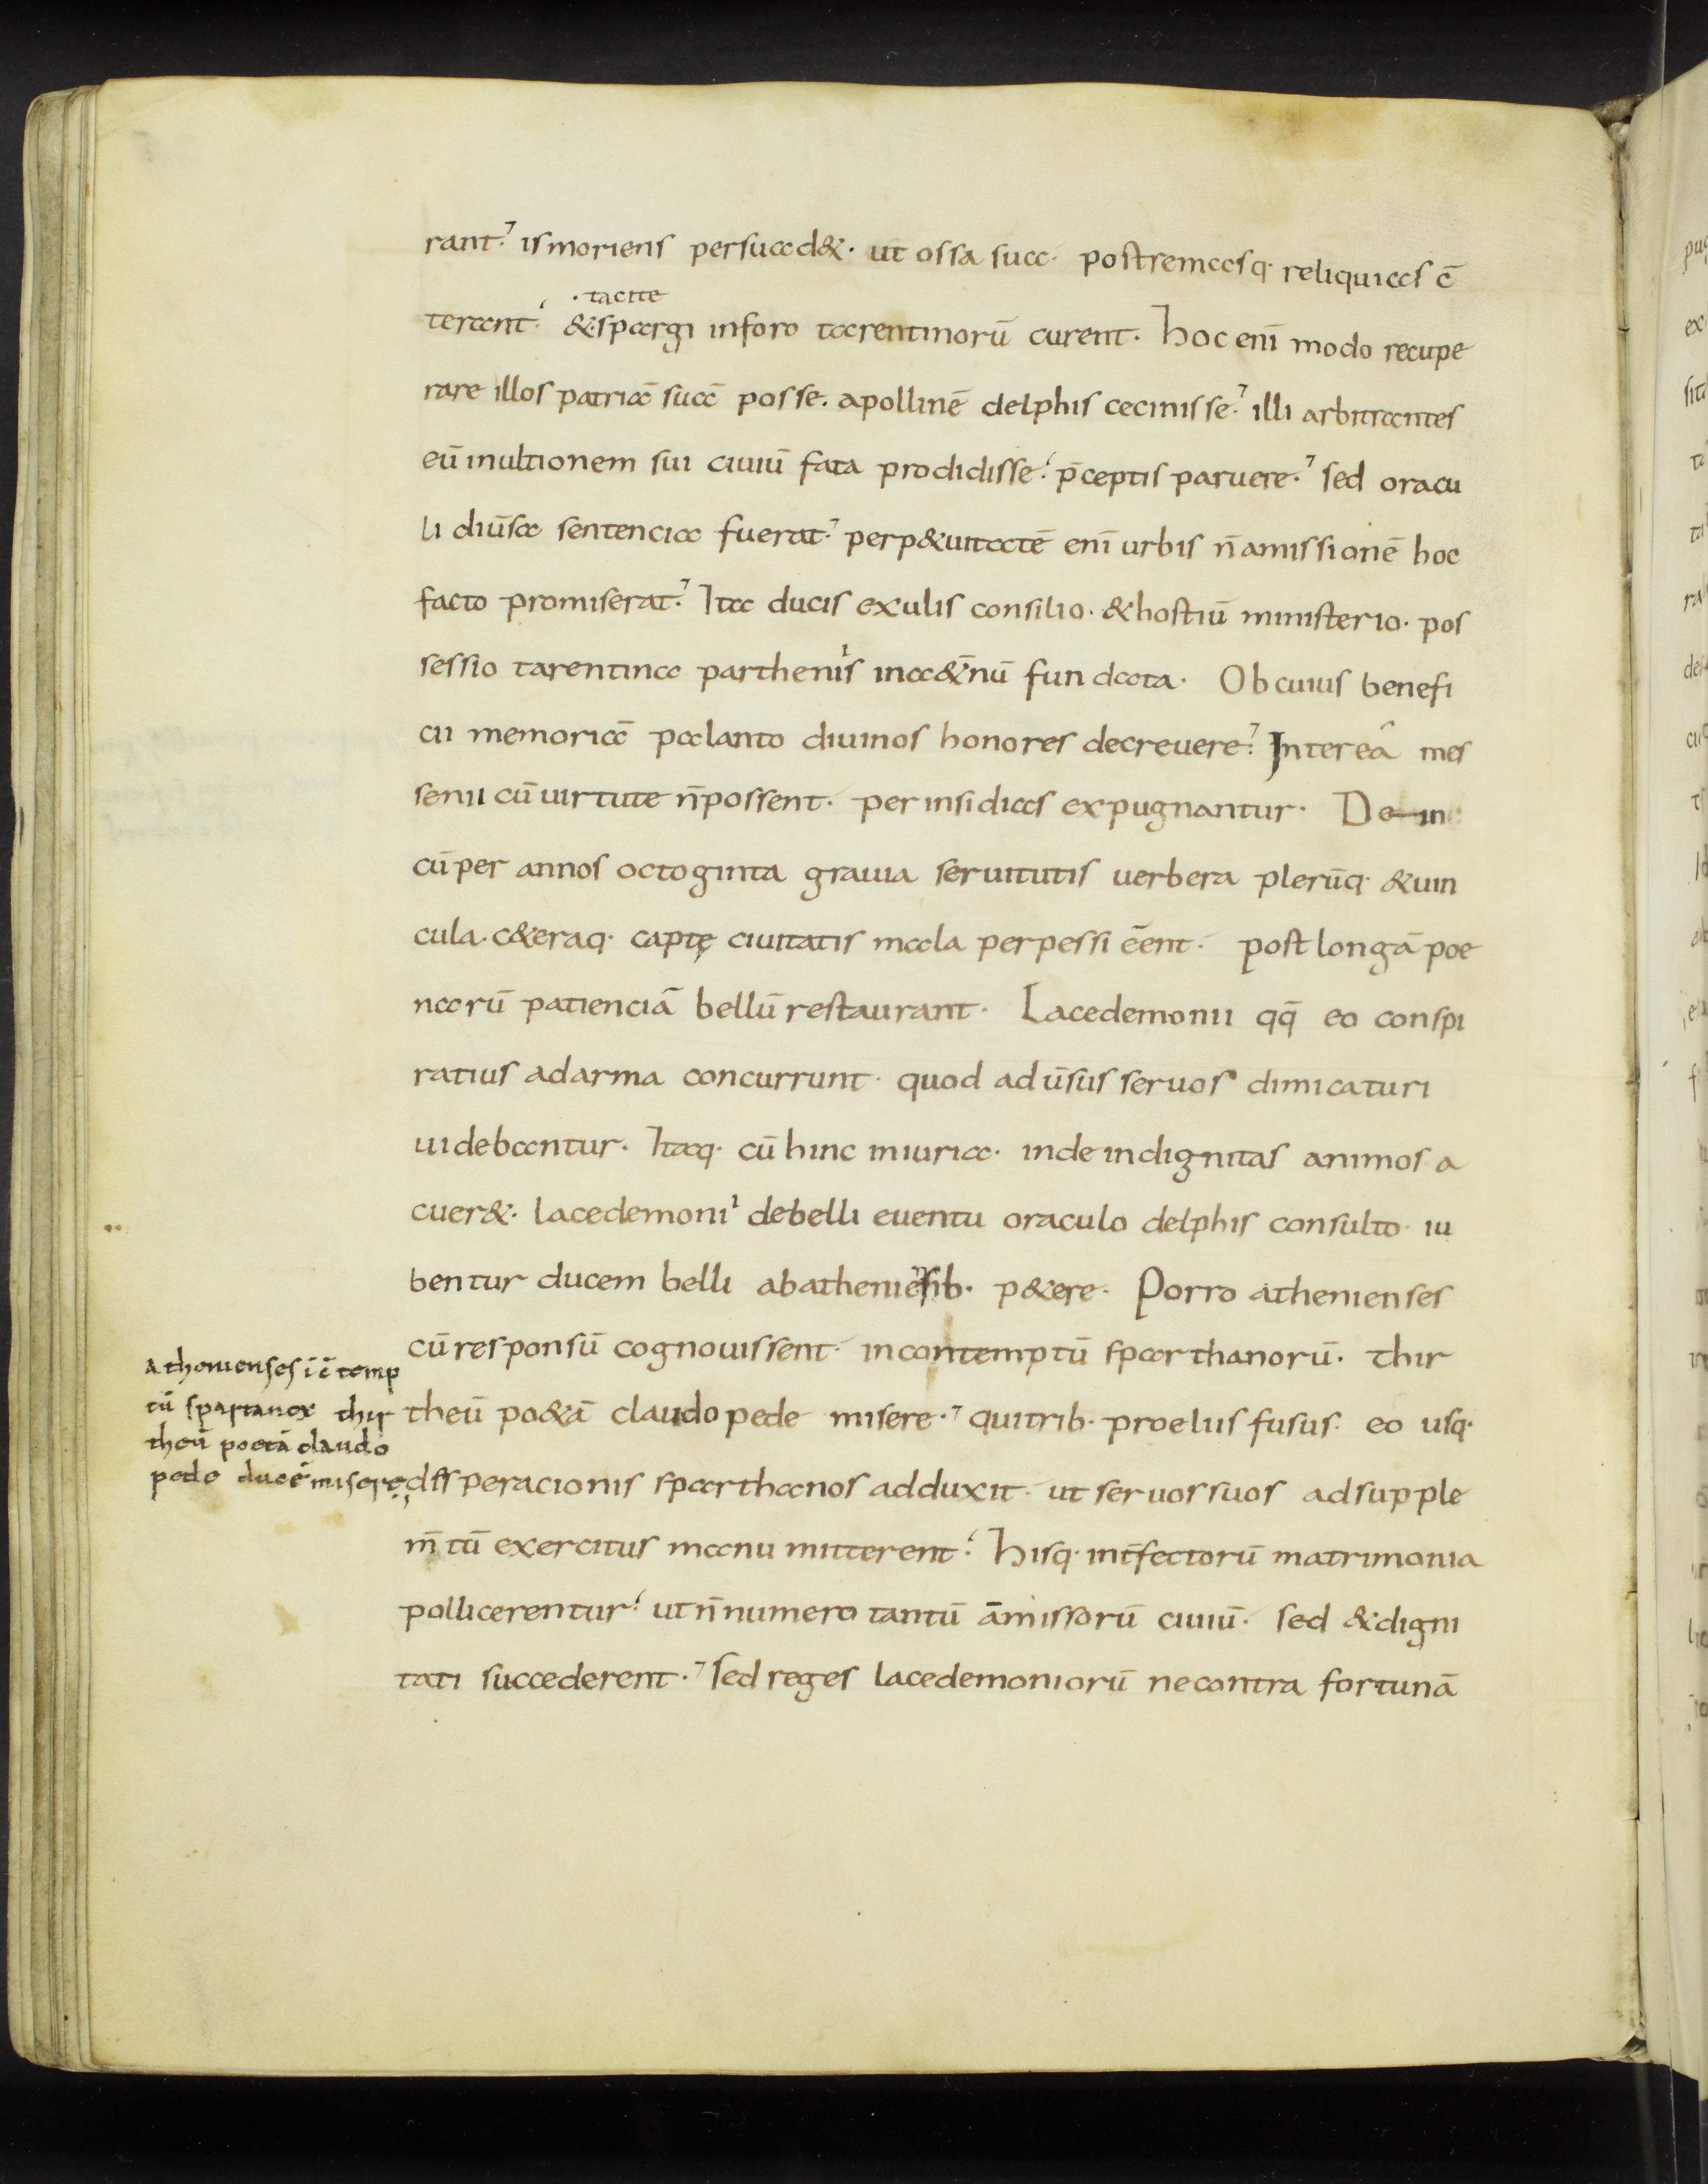 rant. is moriens persuad&. ut ossa sua. postremasq. reliquias c̄
tacite
terant. &. spargi in foro tarentinorū curent. Hoc enī modo recupe
rare illos patriā suā posse. apollinē delphis cecinisse. illi arbitrantes
eū inultionem sui ciuiū fata prodidisse. p̄ceptis paruere. sed oracu
li diūsa sentencia fuerat. perp&uitatē enī urbis n̄ amissionē hoc
facto promiserat. Ita ducis exulis consilio. & hostiū ministerio. pos
sessio tarentina partheniis in a&̄nū fundata. Ob cuius benefi
cii memoriā palanto diuinos honores decreuere. Interea mes
senii cū uirtute n̄ possent. per insidias expugnantur. Dein
cū per annos octoginta grauia seruitutis uerbera plerūq. & uin
cula. c&eraq. captę ciuitatis mala perpessi ēent. post longā poe
narū patienciā bellū restaurant. Lacedemonii qq̄ eo conspi
ratius ad arma concurrunt. quod adūsus seruos dimicaturi
uidebantur. Itaq. cū hinc iniuria. inde indignitas animos a
cuer&. lacedemonii de belli euentu oraculo delphis consulto. iu
bentur ducem belli ab atheniēsib. p&ere. Porro athenienses
cū responsū cognouissent. in contemptū sparthanorū. thir
theū po&ā claudo pede misere. qui trib. proeliis fusus. eo usq.
dessperacionis sparthanos adduxit. ut seruos suos ad supple
m̄tū exercitus manu mitterent. Hisq. int̄fectorū matrimonia
pollicerentur. ut n̄ numero tantū amissorū ciuiū. sed & digni
tati succederent. sed reges lacedemoniorū ne contra fortunā
athenienses ī c̄temp
tū spartanoꝝ thir
theū poetā claudo
pede ducē misere